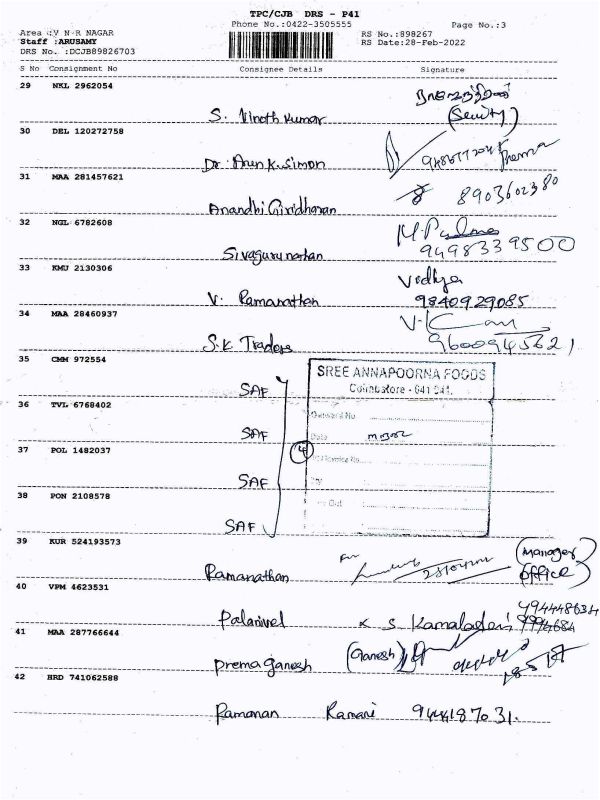 TPC/CJB DRS - P41
Phone No.:0422-3505555 Page No.:3
Area :V N R NAGAR RS No.:898267
Staff :ARUSAMY RS Date:28-Feb-2022
DRS No. :DCJB89826703
S No Consignment No Consignee Details Signature
29 NKL 2962054
S. Vinoth Kumar
30 DEL 120272758
Dr. Arun K. Simon
31 MAA 281457621 8903602380
Anandhi Giridharan
32 NGL 6782608
Sivagurunathan 9498339500
33 KMU 2130306 Vidhya
V. Ramanathan 9840929085
34 MAA 28460937
S.K. Traders 9600945621
35 CMM 972554
SREE ANNAPOORNA FOODS
Coimbatore - 641 041.
SAF
Outward No
36 TVL 6768402
SAF Date
37 POL 1482037 4
SAF
38 PON 2108578
Out
SAF
39 KUR 524193573 (Manager
Ramanathan Office)
40 VPM 4623531
Palanivel K S Kamaladevi
41 MAA 287766644
Prema Ganesh (Ganesh)
42 HRD 741062588
Ramanan Ramani 944187031.